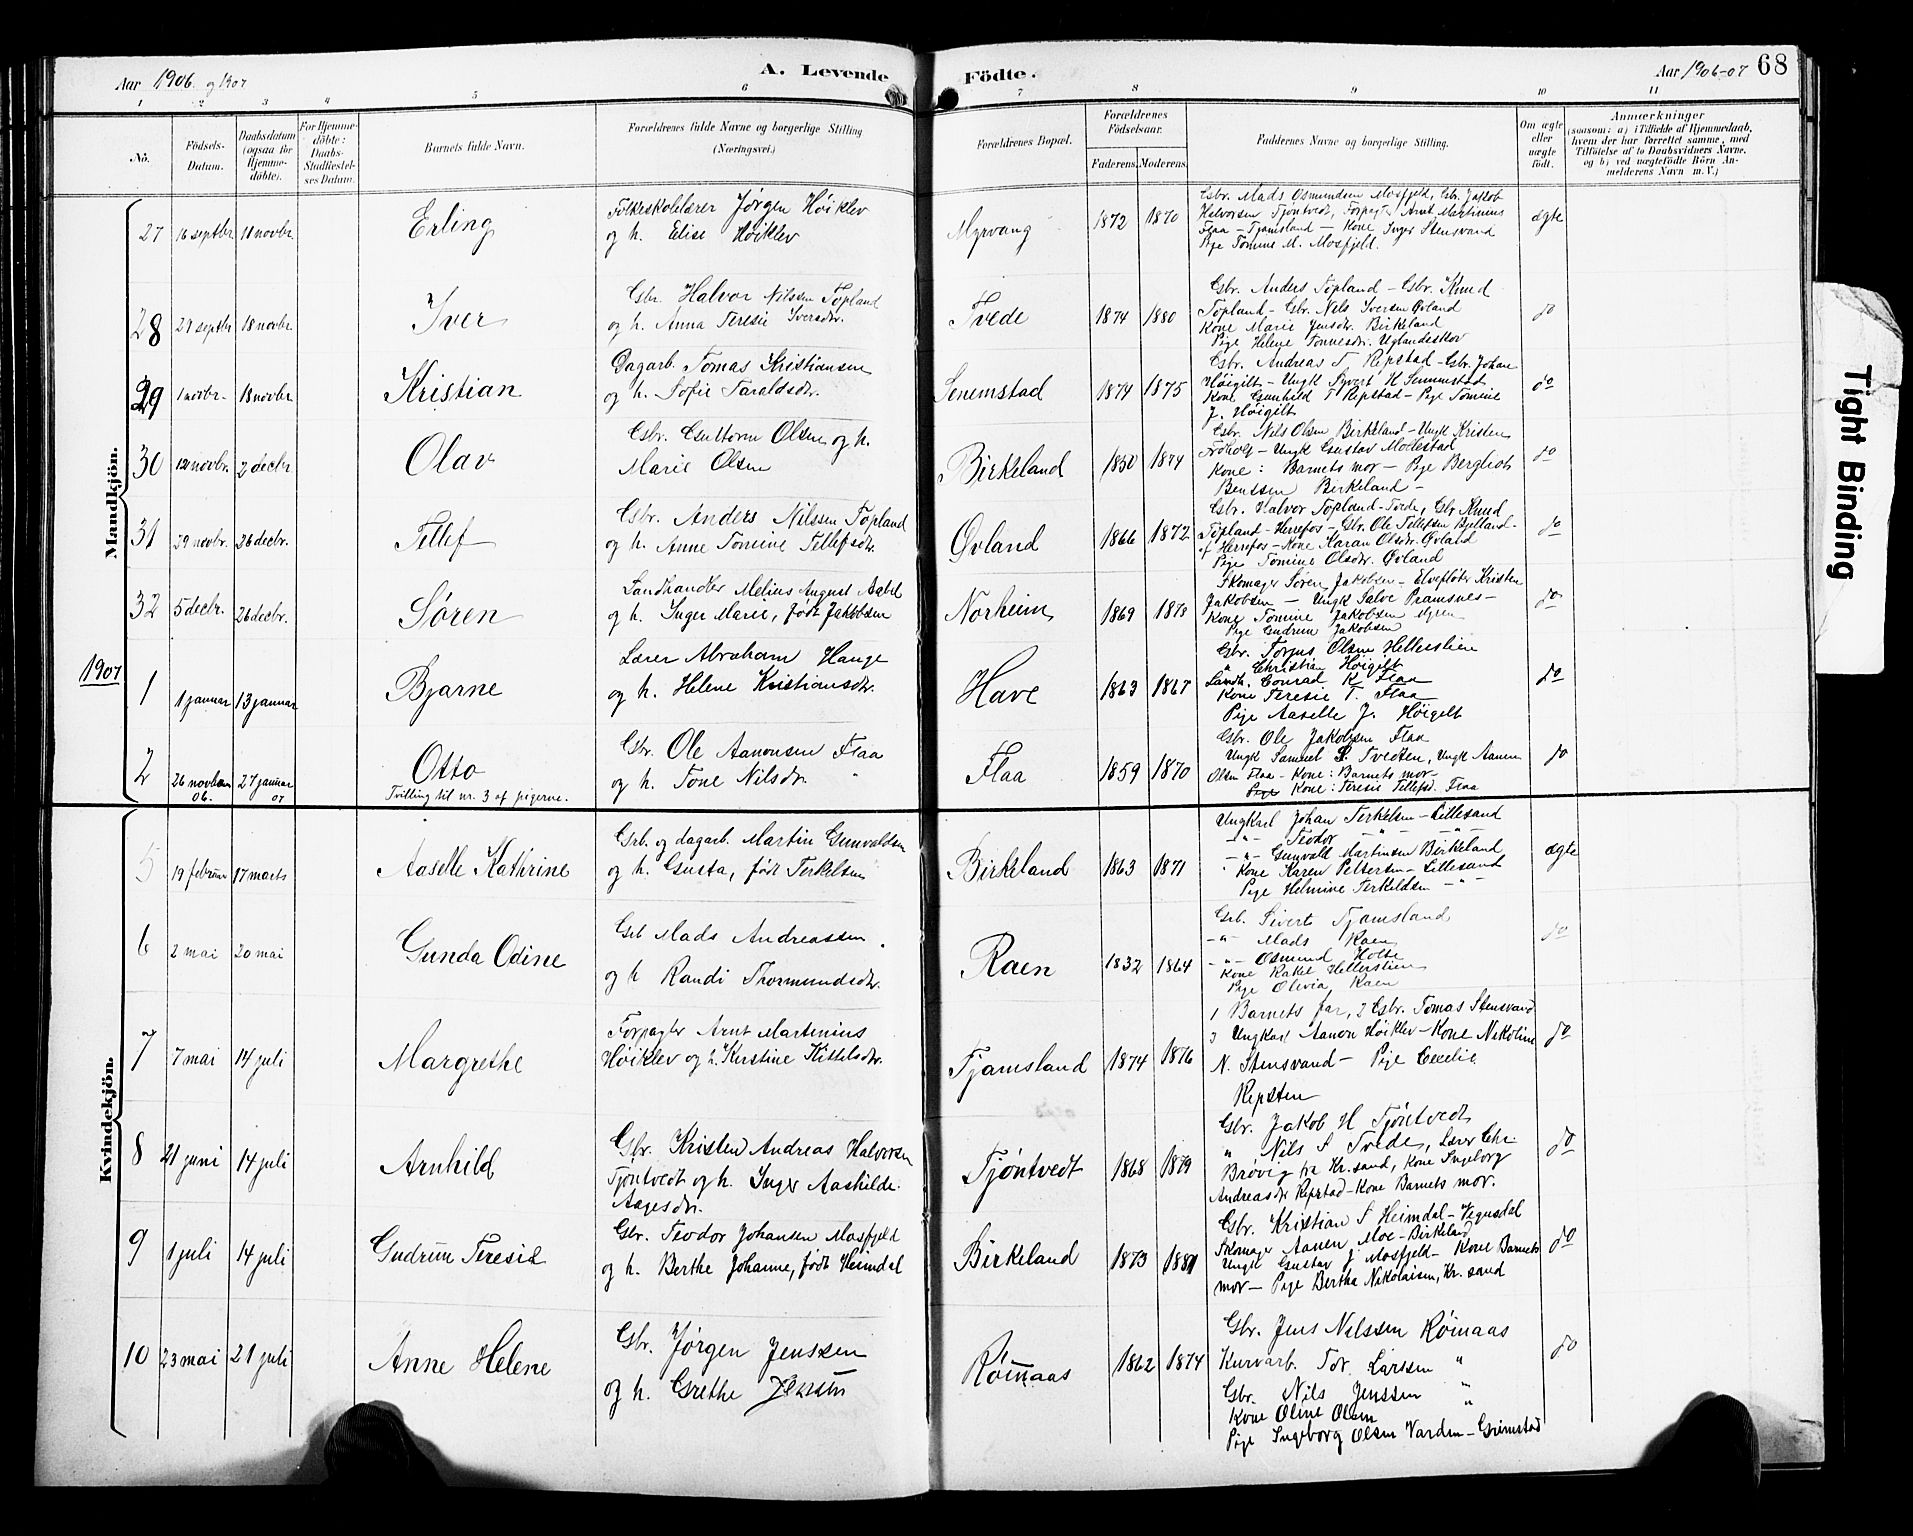 Aar 1906 og 1907
A. Levende Födte.
Aar 1906-07
68
1 2 3 4 5 6 7 8 9 10 11
No.
Födsels-Datum.
Daabsdatum (ogsaa for Hjemme-döbte).
For Hjemme-döbte: Daabs-Stadfæstel-ses Datum.
Barnets fulde Navn.
Forældrenes fulde Navne og borgerlige Stilling (Næringsvei.)
Forældrenes Bopæl.
Forældrenes Födselsaar.
Faderens. Moderens.
Faddernes Navne og borgerlige Stilling.
Om ægte eller uægte födt.
Anmærkninger
(saasom: a) i Tilfælde af Hjemmedaab, hvem der har forrettet samme, med Tilföielse af to Daabsvidners Navne, og b) ved uægtefödte Börn An-melderens Navn m. V.)
Mandkjön.
27 16 septbr 11 novbr. Erling
Folkeskolelærer Jørgen Høiklev
og h. Elise Høiklev
Myrvang 1872 1870
Gbr. Mads Osmundsen Mosfjeld, Gbr. Jakob
Halvorsen Tjöntvedt, Forpagt. Arnt Martinius
Flaa - Tjamsland - Kone Inger Stensvand
Pige Tomine M. Mosfjeld.
ægte
28 27 septbr 18 novbr. Iver
Gbr. Halvor Nilssen Topland
og h. Anna Teresie Iversdtr.
Tvede 1874 1880
Gbr. Anders Topland - Gbr. Knud
Topland - Gbr. Nels Iversen Øvland
Kone Marie Jensdtr. Birkeland
Pige Helene Tonnesdtr. Uglandeskov
do
29 1 novbr. 18 novbr Kristian
Dagarb. Tomas Kristiansen
og h. Sofie Taraldsdtr.
Senemstad 1874 1875
Gbr. Andreas T. Repstad - Gbr. Johan
Høigilt - Ungk Syvert H Senumstad
Kone Gunhild T Repstad - Pige Tomine
J. Høigilt
do
30 12 novbr. 2 decbr Olav
Gbr. Guttorm Olsen og h.
Marie Olsen
Birkeland 1850 1874
Gbr. Nils Olsen Birkeland - Ungk Kristen
Froholt - Ungk Gustav Mollestad
Kone: Barnets mor - Pige Bergliot
Bentsen Birkeland -
do
31 29 novbr. 26 decbr. Tellef
Gbr. Anders Nilssen Topland
og h. Anne Tomine Tellefsdtr.
Øvland 1866 1872
Gbr. Halvor Topland - Tvede, Gbr Knud
Topland - Herrefos - Gbr. Ole Tellefsen Bjelland -
af Herrefos - Kone Karan Olsdtr. Øvland
Pige Tomine Olsdtr. Øvland
do
32 5 decbr. 26 decbr. Søren
Landhandler Melius August Aabel
og h. Inger Marie, født Jakobsen
Norheim 1869 1873
Skomager Søren Jakobsen - Elvefløter Kristen
Jakobsen - Ungk Salve Pramsnes -
Kone Tomine Jakobsen Myren
Pige Gudrum Jakobsen
do
1907
1 1 januar 13 januar Bjarne
Lærer Abraham Hauge
og h. Helene Kristiansdtr.
Have 1863 1867
Gbr. Torjus Olsen Hellerslien
" Christian Høigilt
Landh. Conrad K. Flaa
Kone Teresie T. Flaa
Pige Aaselle J. Høigelt
do
2 26 novbem 06. 27 januar 07 Otto
Tvilling til nr. 3 af pigerne.
Gbr. Ole Aanonsen Flaa
og h. Tone Nilsdtr. "
Flaa 1859 1870
Gbr. Ole Jakobsen Flaa
Ungk Samuel S. Tvedten, Ungk Aanen
Olsen Flaa - Kone: Barnets mor -
Pige Kone: Teresie Tellefsd. Flaa
do
Kvindekjön.
5 19 februar 17 marts Aaselle Kathrine
Grb. og dagarb. Martin Gunvaldsen
og h. Gusta, født Terkelsen
Birkeland 1863 1871
Ungkarl Johan Terkelsen - Lillesand
-"- Teodor -"- -"-
-"- Gunvald Martinsen Birkeland
Kone Karen Pettersen - Lillesand
Pige Helmine Terkeldsen -"-
ægte
6 2 mai 20 mai Gunda Odine
Grb Mads Andreassen
og h Randi Thormundsdtr.
Raen 1832 1864
Grb. Sivert Tjamsland
-"- Mads Raen
-"- Osmund Holte
Kone Rakel Hellerslien
Pige Olivia Raen
do
7 7 mai 14 juli Margrethe
Forpagter Arnt Martinius
Høiklev og h. Kirstine Kittelsdtr.
Tjamsland 1874 1876
1 Barnets far, 2 Gbr. Tomas Stensvand
3 Ungkarl Aanon Høiklev - Kone Nikoline
N. Stensvand - Pige Cecelie
Repsten
do
8 21 juni 14 juli Arnhild
Gbr. Kristen Andreas Halvorsen
Tjöntvedt og h. Inger Aashilde
Aagesdtr.
Tjöntvedt 1868 1879
Gbr. Jakob H Tjöntvedt
" Nils S Tvede, Lærer Chr.
Brøvig fra Kr.sand, Kone Ingeborg
Andreasdtr Repstad - Kone Barnets mor.
do
9 1 juli 14 juli Gudrun Teresie
Gbr. Teodor Johansen Mosfjeld
og h. Berthe Johanne, født Heimdal
Birkeland 1873 1881
Gbr. Kristian S Heimdal - Vegusdal
Skomager Aanen Moe - Birkeland
Ungk Gustav J Mosfjeld - Kone Barnets
mor - Pige Bertha Nikolaisen, Kr.sand
do
10 23 mai 21 juli Anne Helene
Gbr. Jørgen Jenssen
og h. Grethe Jensen
Røinaas 1862 1874
Gbr. Jens Nilssen Røinaas
Kurvarb. Tor. Larssen "
Gbr. Nils Jenssen "
Kone Oline Olsen "
Pige Ingeborg Olsen Varden - Grimstad
do
Tight Binding